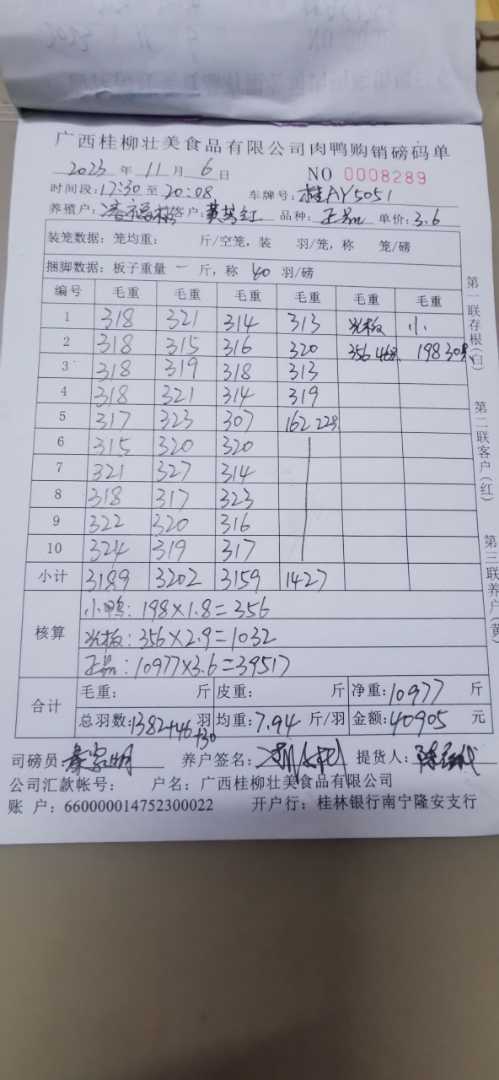 广西桂柳壮美食品有限公司肉鸭购销磅码单
2023 年 11 月 6 日 NO 0008289
时间段:17:30 至 20:08 车牌号:桂AY5051
养殖户: 客户:黄 红 品种:正品 单价:3.6
装笼数据:笼均重: 斤/空笼,装 羽/笼,称 笼/磅
捆脚数据:板子重量 一 斤,称 40 羽/磅
编号 毛重 毛重 毛重 毛重 毛重 毛重
1 318 321 314 313 光板 小
2 318 315 316 320 356 46羽 198 30羽
3 318 319 318 313
4 318 321 314 319
5 317 323 307 162 22羽
6 315 320 320
7 321 327 314
8 318 317 323
9 322 320 316
10 324 319 317
小计 3189 3202 3159 1427
核算
小鸭:198×1.8=356
光板:356×2.9=1032
正品:10977×3.6=39517
合计
毛重: 斤 皮重: 斤 净重:10977 斤
总羽数:1382+46+30 羽 均重:7.94 斤/羽 金额:40905 元
司磅员: 养户签名: 提货人:
公司汇款帐号: 户名:广西桂柳壮美食品有限公司
账 户:660000014752300022 开户行:桂林银行南宁隆安支行
第一联存根(白)
第二联客户(红)
第三联养户(黄)